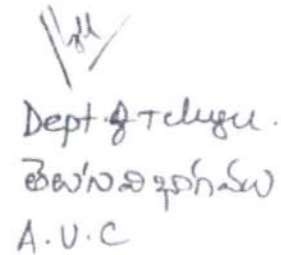 Dept. of Telugu.
తెలుగు విభాగము
A.U.C